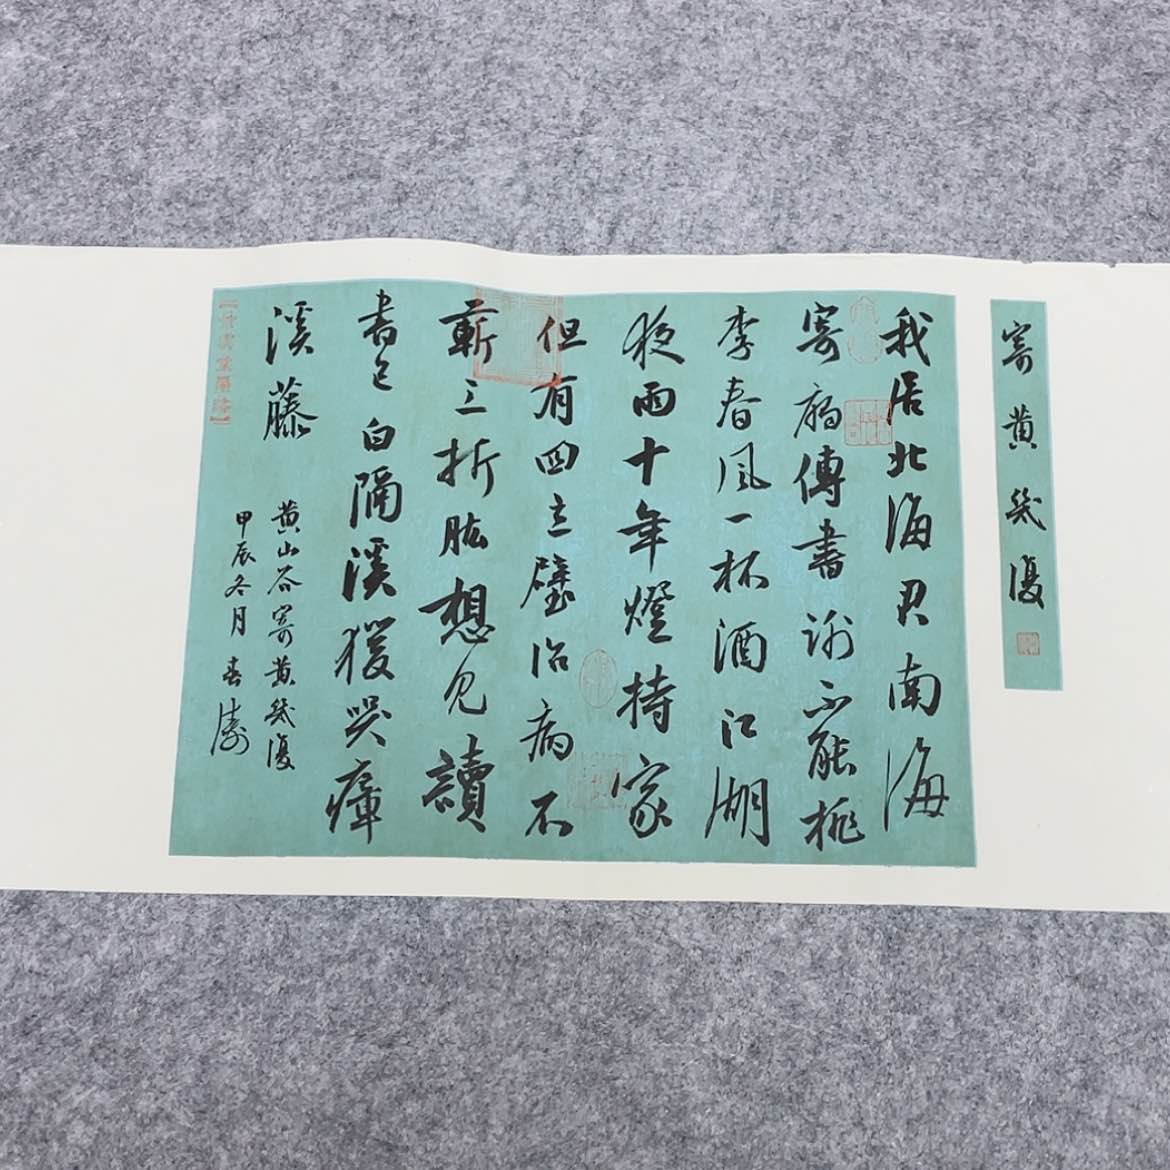 寄黄幾復
我居北海君南海
寄鴈傳書謝不能桃
李春風一杯酒江湖
夜雨十年燈持家
但有四立壁治病不
蘄三折肱想見讀
書已白隔溪猨哭瘴
溪藤
黄山谷寄黄幾復
甲辰冬月春濤